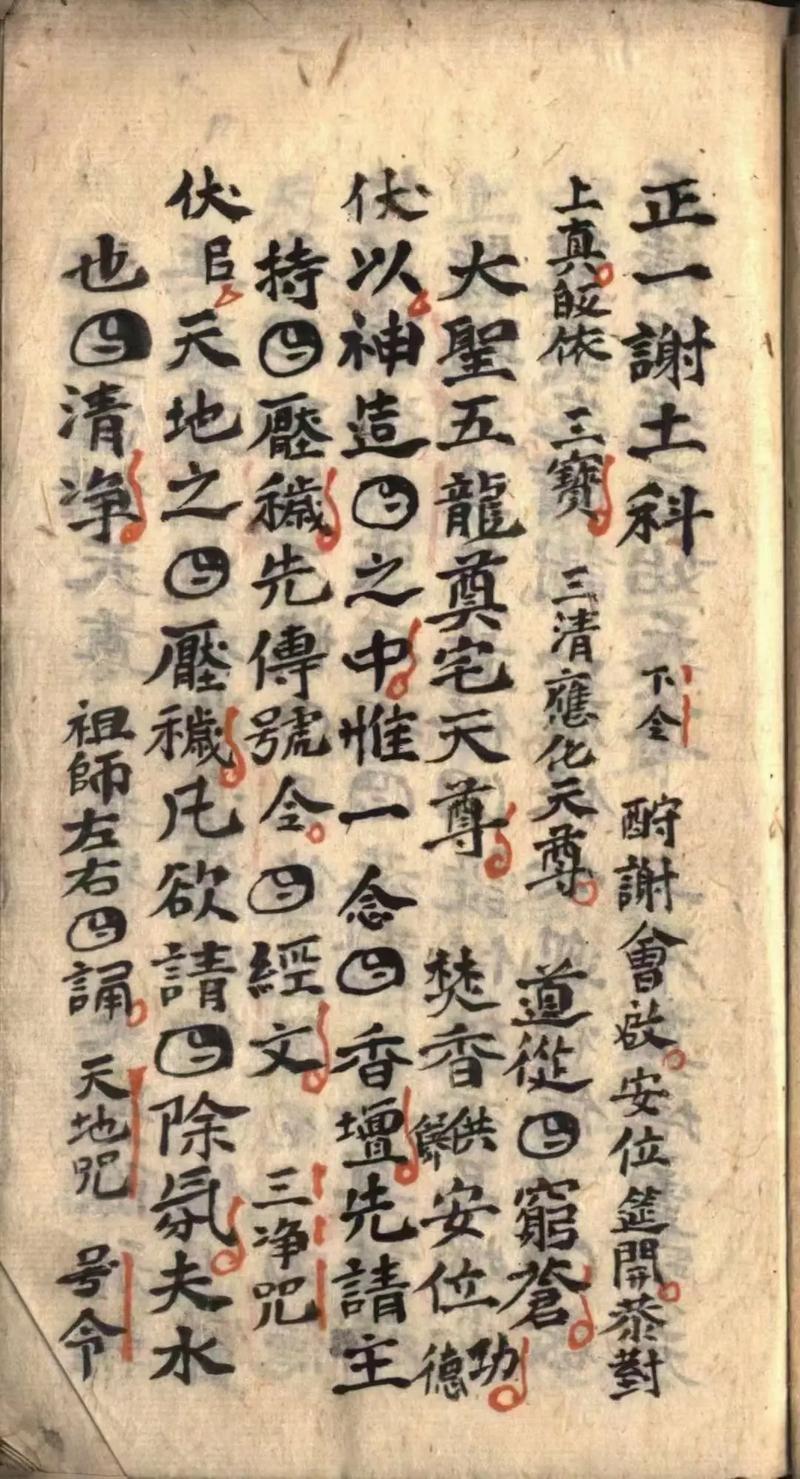 正一謝土科 下令 酧謝會啟安位筵開恭對
上真皈依 三寶 三清應化天尊 道從 窮蒼
大聖五龍奠宅天尊 焚香供 安位功德
伏以神造 之中惟一念 香壇先請主
持 壓穢先傳號令 經文 三净咒
伏㠯天地之 壓穢凡欲請 除氛夫水
也 清净 祖師左右 誦 天地咒 号令